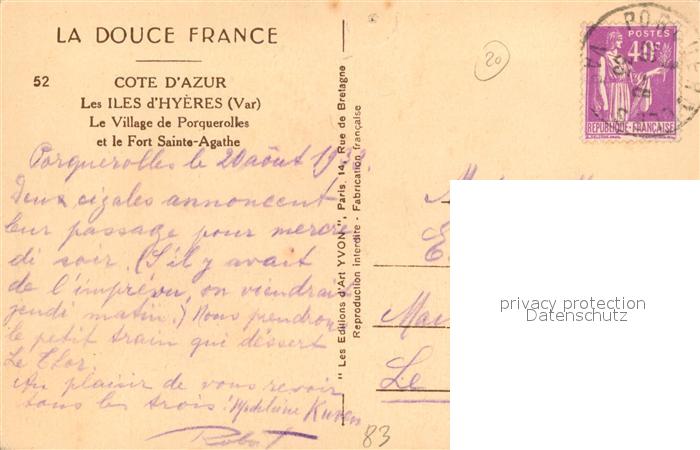 LA DOUCE FRANCE
52
COTE D'AZUR
Les ILES d'HYÈRES (Var)
Le Village de Porquerolles
et le Fort Sainte-Agathe
Porquerolles le 20 août
Deux cigales annoncent
leur passage pour mercre
di soir. (S'il y avait
de l'imprévu, on viendrait
jeudi matin.) Nous prendrons
le petit train qui dessert
Le
Au plaisir de vous revoir
tous les trois! Madeleine
Robert
" Les Editions d'Art YVON ", Paris, 14, Rue de Bretagne
Reproduction interdite - Fabrication française
20
POSTES
40c
REPUBLIQUE-FRANÇAISE
Le
83
privacy protection
Datenschutz